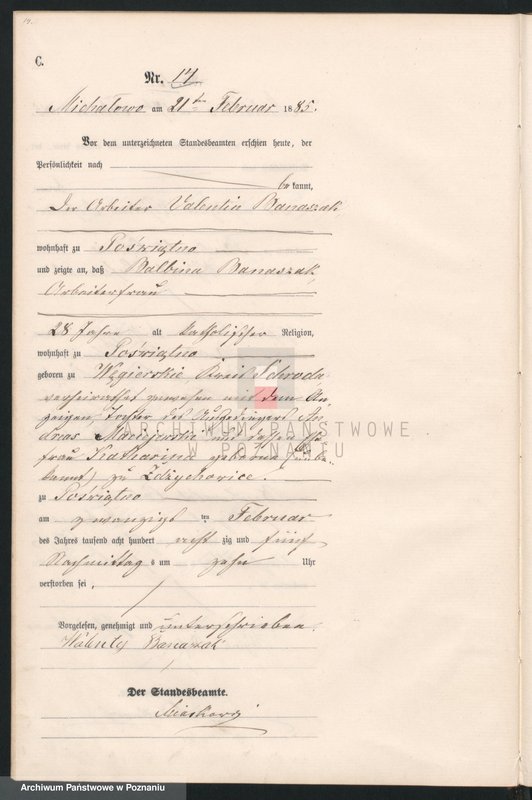 C.
Nr. 14
Michałowo am 21ten Februar 1885.
Vor dem unterzeichneten Standesbeamten erschien heute, der
Persönlichkeit nach
be kannt,
Der Arbeiter Valentin Banaszak
wohnhaft zu Pośwęztno
und zeigte an, daß Balbina Banaszak,
Arbeiterfrau
28 Jahre alt katholischer Religion,
wohnhaft zu
geboren zu Węgierskie Kreis Schroda
verheirathet gewesen mit dem An-
zeigen, Tochter des An-
dreas Maciejewski und dessen Ehe
frau Katharina geborene
kannt) zu
zu
am zwanzigsten Februar
des Jahres tausend acht hundert acht zig und fünf
Nachmittags um zehn Uhr
verstorben sei.
Vorgelesen, genehmigt und unterschrieben.
Walenty Banaszak
Der Standesbeamte.
ARCHIWUM PAŃSTWOWE
W POZNANIU
Archiwum Państwowe w Poznaniu